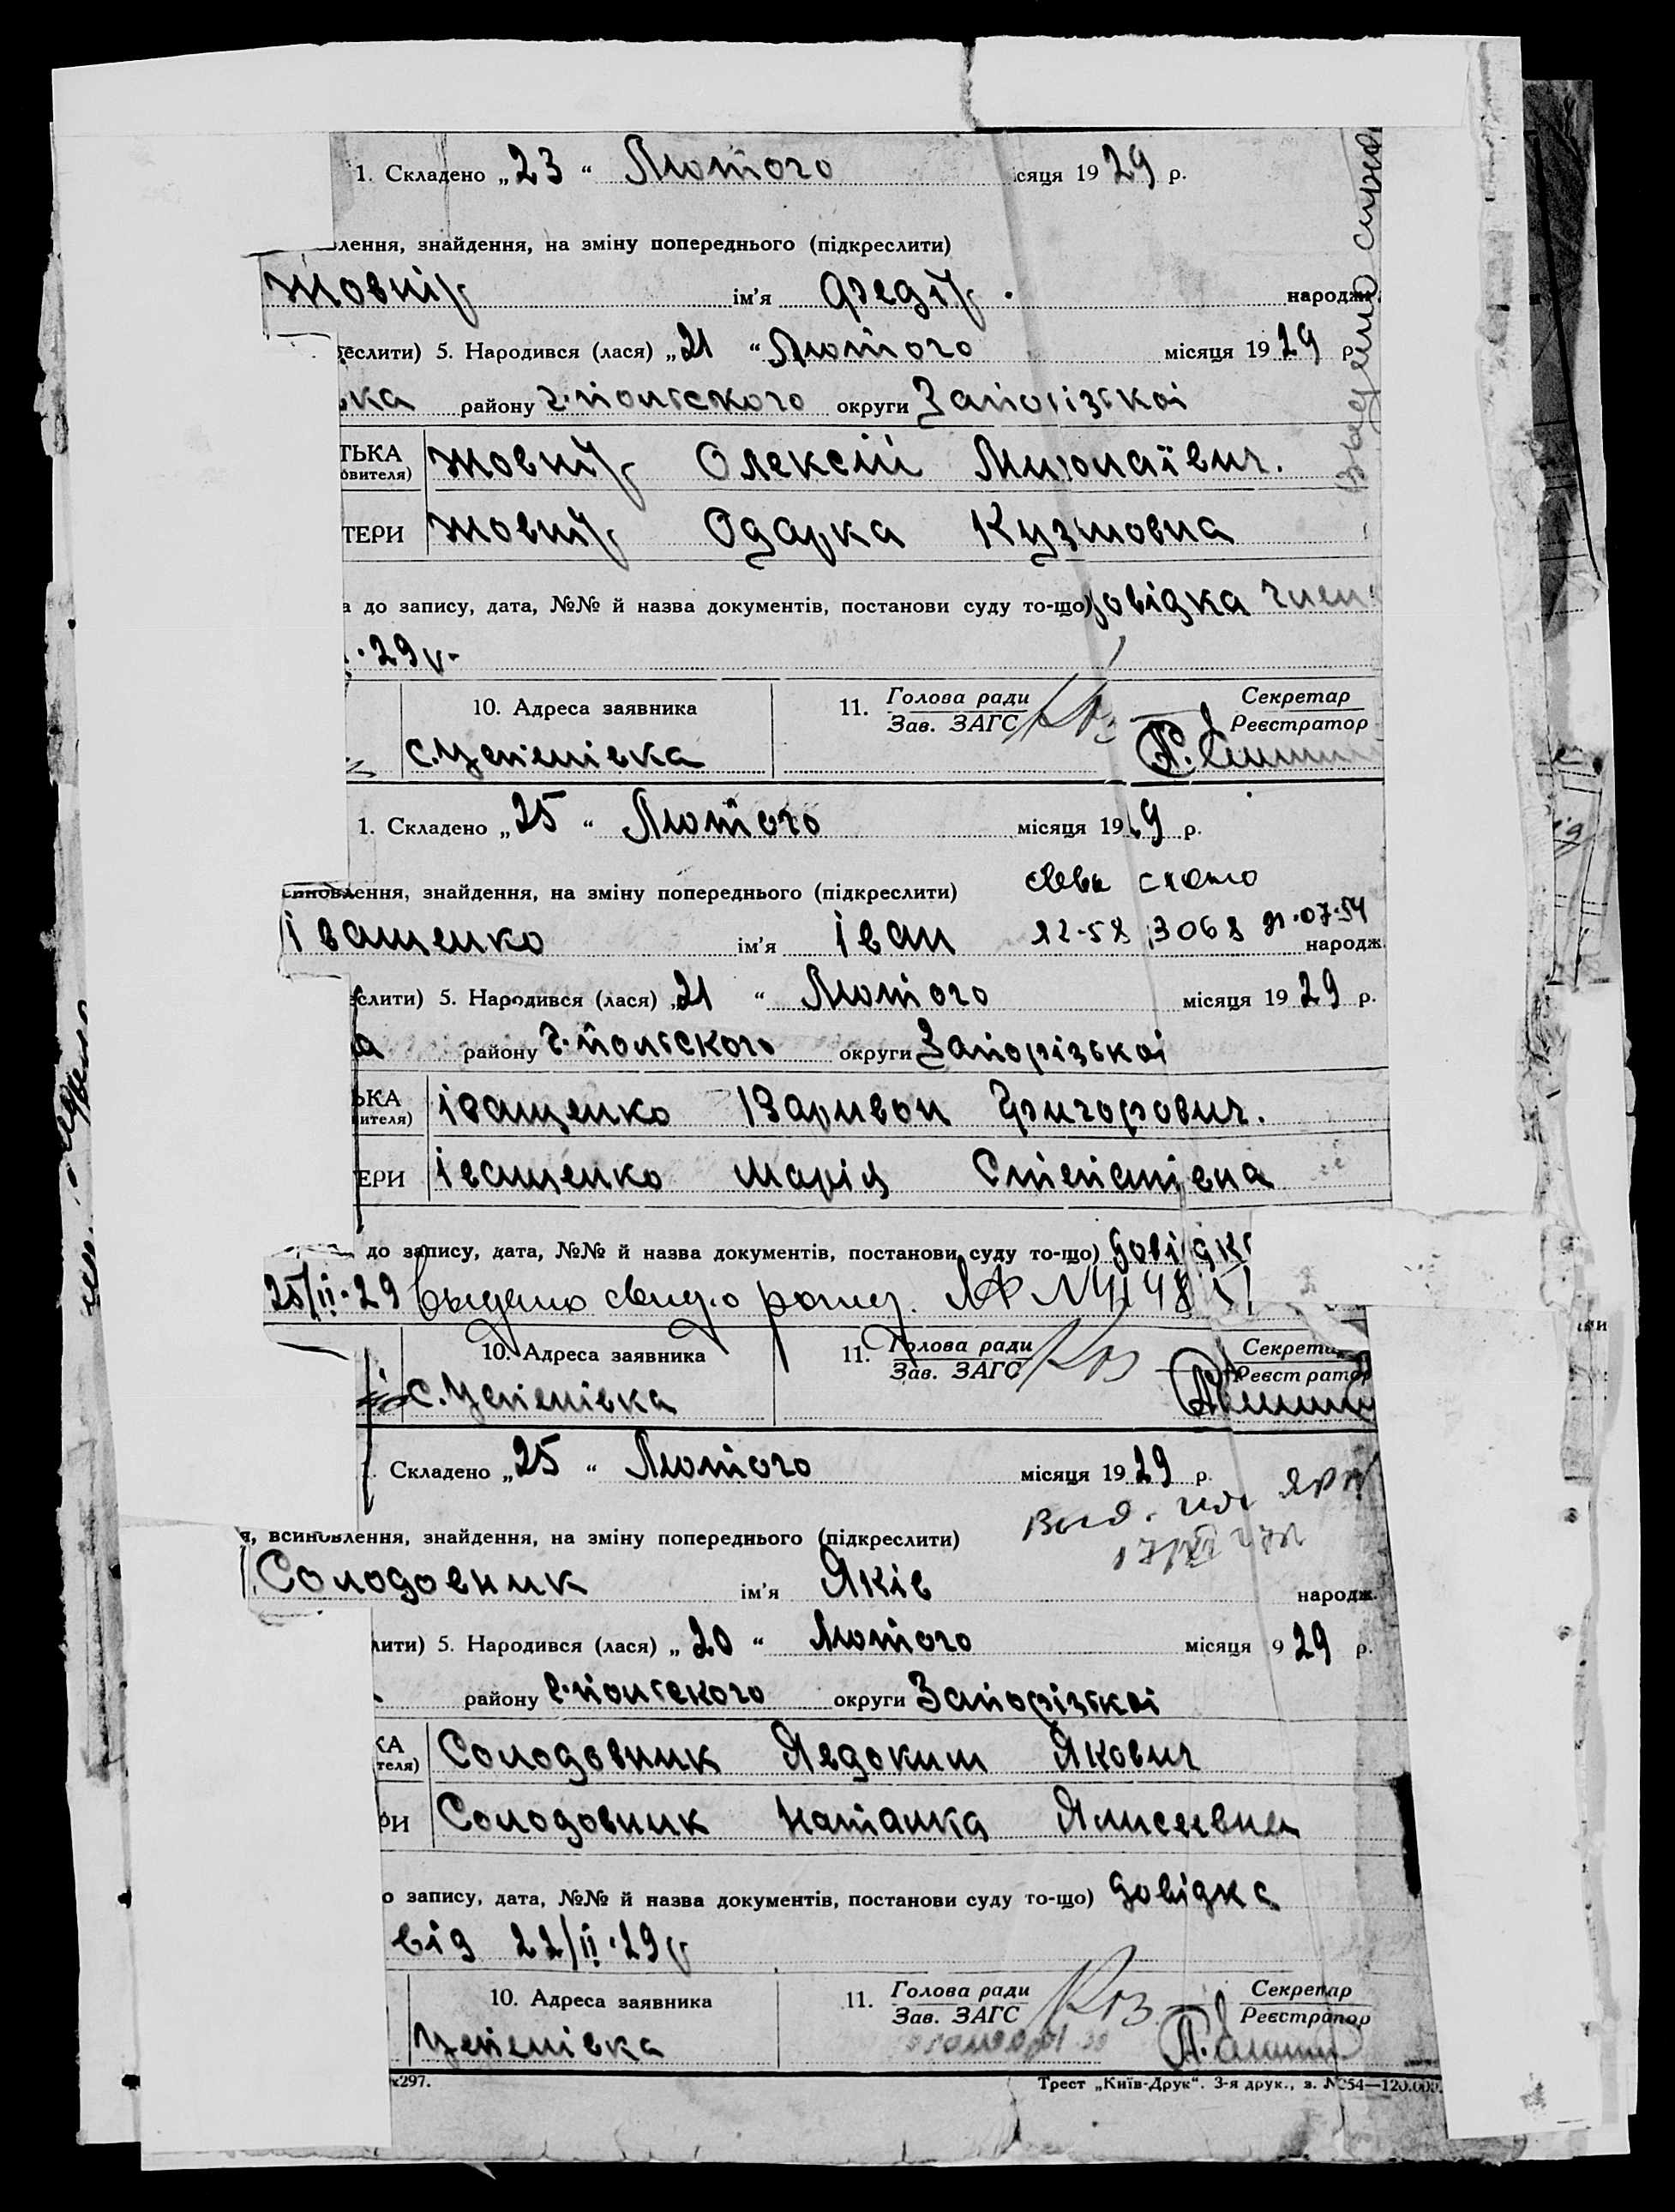 1. Складено „23“ Лютого сяця 1929 р.
лення, знайдення, на зміну попереднього (підкреслити)
Жовнір ім'я Федір. народж.
еслити) 5. Народився (лася) „21“ Лютого місяця 1929 р.
вка району г.польського округи Запорізької
ТЬКА Жовнір Олексій Миколаївич.
овителя)
ТЕРИ Жовнір Одарка Кузмовна
а до запису, дата, №№ й назва документів, постанови суду то-що) довідка член
.29р.
10. Адреса заявника 11. Голова ради Секретар
Зав. ЗАГС Реєстратор
с. Успенівка
1. Складено „25“ Лютого місяця 19 9 р.
синовлення, знайдення, на зміну попереднього (підкреслити)
Іващенко ім'я Іван 3068 07.54 народж.
еслити) 5. Народився (лася) „21“ Лютого місяця 1929 р.
а району г.польского округи Запорізької
ЬКА іващенко Варивон Григорович.
вителя)
ЕРИ іващенко Марія Степанівна
до запису, дата, №№ й назва документів, постанови суду то-що) довідка
25/II.29 выдано свид. о рожд.
10. Адреса заявника 11. Голова ради Секрета
Зав. ЗАГС Реєстратор
с. Успенівка
Складено „25“ Лютого місяця 1929 р.
я, всиновлення, знайдення, на зміну попереднього (підкреслити)
Солодовник ім'я Яків народж.
лити) 5. Народився (лася) „20“ Лютого місяця 929 р.
району г.польского округи Запорізької
КА Солодовник Явдоким Якович
теля)
РИ Солодовник Наталка Ялисеевна
о запису, дата, №№ й назва документів, постанови суду то-що) довідка
від 22/II.29р
10. Адреса заявника 11. Голова ради Секретар
Зав. ЗАГС Реєстратор
Успенівка
х297. Трест „Київ-Друк“. 3-я друк., з. №254—120.000.